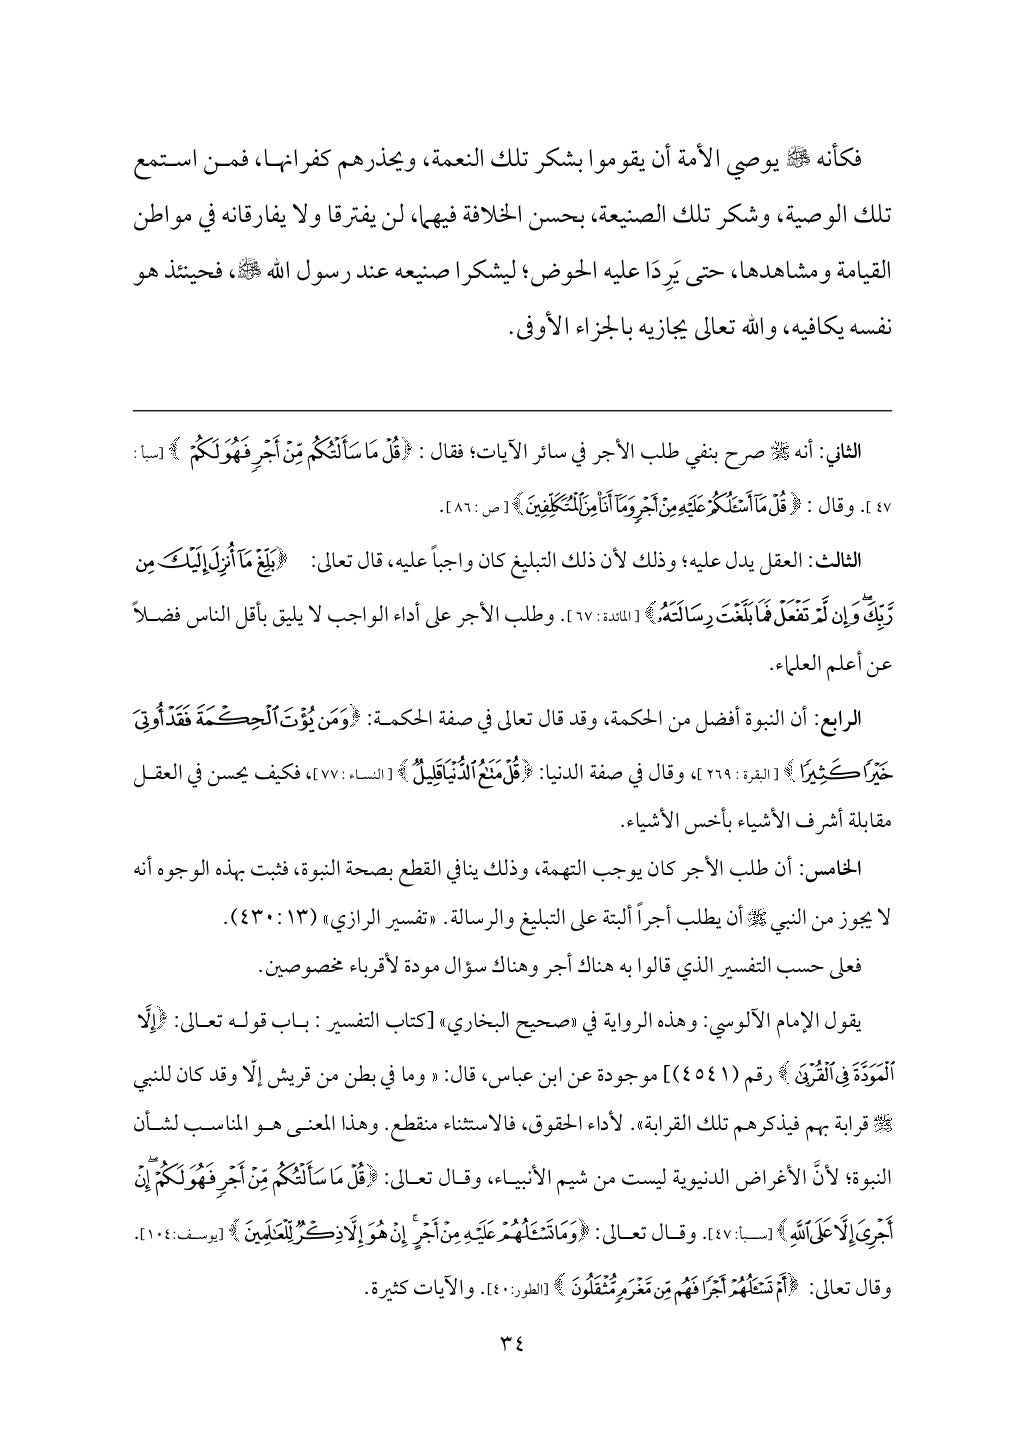 فكأنه ﷺ يوصي الأمة أن يقوموا بشكر تلك النعمة، ويحذرهم كفرانها، فمن استمع
تلك الوصية، وشكر تلك الصنيعة، بحسن الخلافة فيهما، لن يفترقا ولا يفارقانه في مواطن
القيامة ومشاهدها، حتى يَرِدَا عليه الحوض؛ ليشكرا صنيعه عند رسول الله ﷺ، فحينئذ هو
نفسه يكافيه، والله تعالى يجازيه بالجزاء الأوفى.
الثاني: أنه ﷺ صرح بنفي طلب الأجر في سائر الآيات؛ فقال : ﴿قُلْ مَا سَأَلْتُكُم مِّنْ أَجْرٍ فَهُوَ لَكُمْ ﴾ [سبأ :
٤٧ ]. وقال : ﴿ قُلْ مَآ أَسْـَٔلُكُمْ عَلَيْهِ مِنْ أَجْرٍ وَمَآ أَنَا۠ مِنَ ٱلْمُتَكَلِّفِينَ ﴾ [ ص : ٨٦ ].
الثالث: العقل يدل عليه؛ وذلك لأن ذلك التبليغ كان واجباً عليه، قال تعالى: ﴿بَلِّغْ مَآ أُنزِلَ إِلَيْكَ مِن
رَّبِّكَ ۖ وَإِن لَّمْ تَفْعَلْ فَمَا بَلَّغْتَ رِسَالَتَهُۥ ﴾ [ المائدة : ٦٧ ]. وطلب الأجر على أداء الواجب لا يليق بأقل الناس فضلاً
عن أعلم العلماء.
الرابع: أن النبوة أفضل من الحكمة، وقد قال تعالى في صفة الحكمة: ﴿وَمَن يُؤْتَ ٱلْحِكْمَةَ فَقَدْ أُوتِىَ
خَيْرًا كَثِيرًا ﴾ [ البقرة : ٢٦٩ ]، وقال في صفة الدنيا: ﴿قُلْ مَتَٰعُ ٱلدُّنْيَا قَلِيلٌ ﴾ [ النساء : ٧٧]، فكيف يحسن في العقل
مقابلة أشرف الأشياء بأخس الأشياء.
الخامس: أن طلب الأجر كان يوجب التهمة، وذلك ينافي القطع بصحة النبوة، فثبت بهذه الوجوه أنه
لا يجوز من النبي ﷺ أن يطلب أجراً ألبتة على التبليغ والرسالة. «تفسير الرازي» (١٣ : ٤٣٠).
فعلى حسب التفسير الذي قالوا به هناك أجر وهناك سؤال مودة لأقرباء مخصوصين.
يقول الإمام الآلوسي: وهذه الرواية في «صحيح البخاري» [كتاب التفسير : باب قوله تعالى: ﴿إِلَّا
ٱلْمَوَدَّةَ فِى ٱلْقُرْبَىٰ ﴾ رقم (٤٥٤١)] موجودة عن ابن عباس، قال: « وما في بطن من قريش إلّا وقد كان للنبي
ﷺ قرابة بهم فيذكرهم تلك القرابة». لأداء الحقوق، فالاستثناء منقطع. وهذا المعنى هو المناسب لشأن
النبوة؛ لأنَّ الأغراض الدنيوية ليست من شيم الأنبياء، وقال تعالى: ﴿قُلْ مَا سَأَلْتُكُم مِّنْ أَجْرٍ فَهُوَ لَكُمْ ۖ إِنْ
أَجْرِىَ إِلَّا عَلَى ٱللَّهِ ﴾ [سبأ:٤٧]. وقال تعالى: ﴿وَمَا تَسْـَٔلُهُمْ عَلَيْهِ مِنْ أَجْرٍ ۚ إِنْ هُوَ إِلَّا ذِكْرٌ لِّلْعَٰلَمِينَ ﴾ [يوسف:١٠٤].
وقال تعالى: ﴿أَمْ تَسْـَٔلُهُمْ أَجْرًا فَهُم مِّن مَّغْرَمٍ مُّثْقَلُونَ ﴾ [الطور:٤٠]. والآيات كثيرة.
٣٤